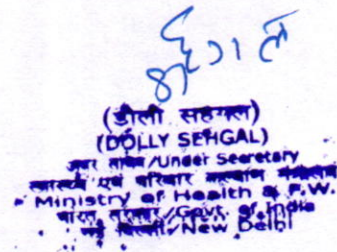 (डोली सहगल)
(DOLLY SEHGAL)
अवर सचिव/Under Secretary
स्वास्थ्य एवं परिवार कल्याण मंत्रालय
Ministry of Health & F.W.
भारत सरकार/Govt. of India
नई दिल्ली/New Delhi